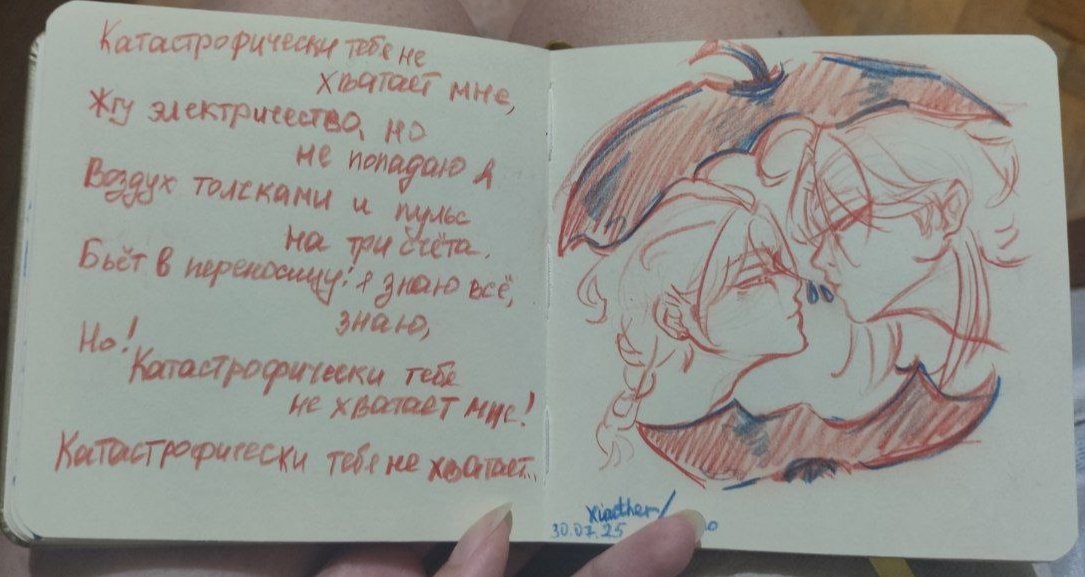 Катастрофически тебе не
хватает мне,
Жгу электричество, но
не попадаю я
Воздух толсками и пульс
на три счёта.
Бьёт в переносицу: я знаю всё,
знаю,
Но!
Катастрофически тебе
не хватает мне!
Катастрофически тебе не хватает..
Xiaether/
30.07.25